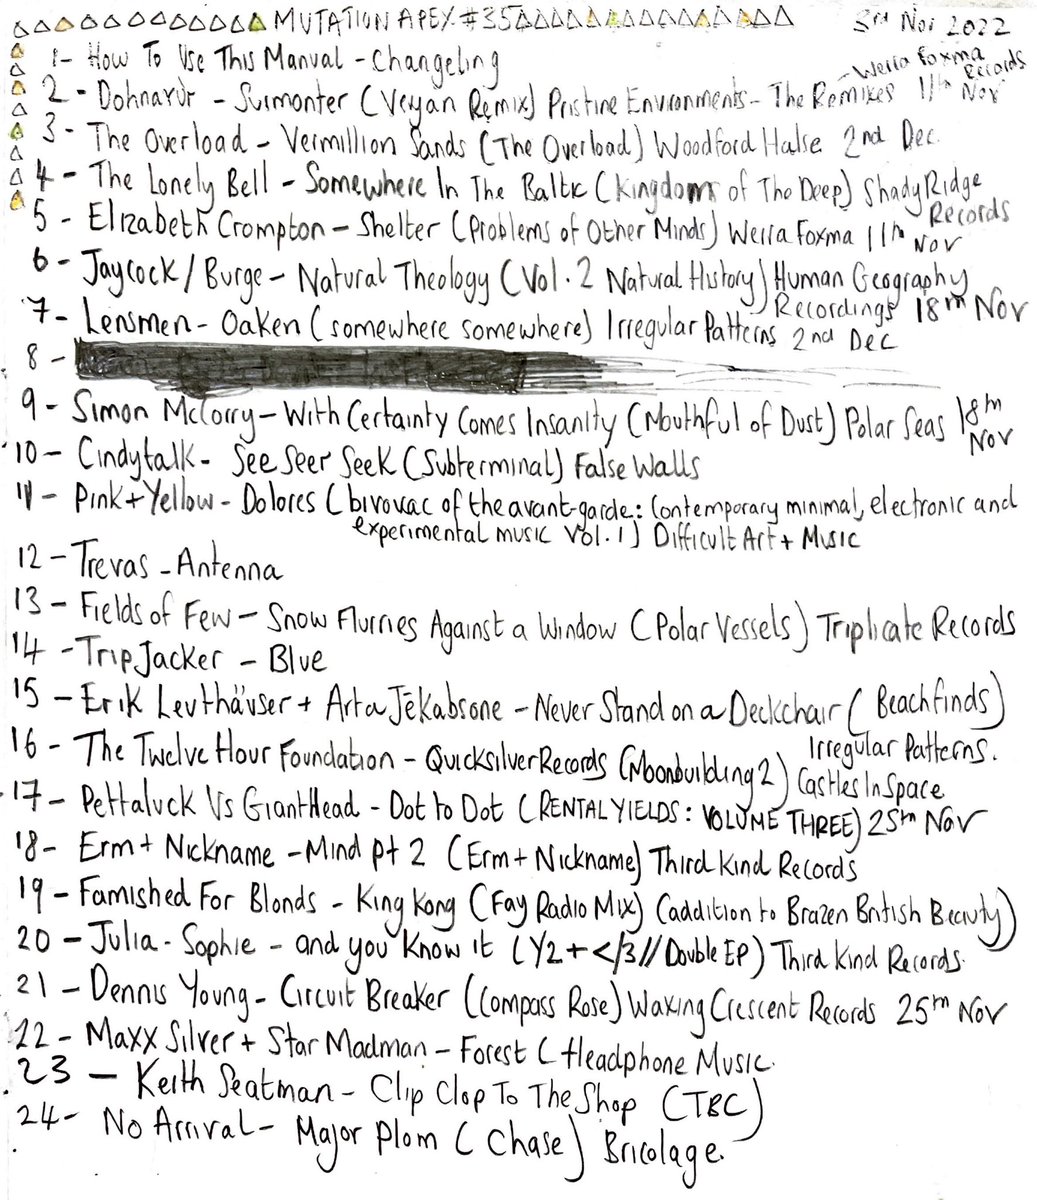 MUTATION APEX #35 3rd Nov 2022
1- How To Use This Manual - Changeling
- Werra Foxma Records
2- Dohnavùr - Surmonter (Veryan Remix) Pristine Environments - The Remixes 11th Nov
3- The Overload - Vermillion Sands (The Overload) Woodford Halse 2nd Dec.
4- The Lonely Bell - Somewhere In The Baltic (Kingdom of The Deep) Shady Ridge Records
5- Elizabeth Crompton - Shelter (Problems of Other Minds) Werra Foxma 11th Nov
6- Jaycock/Burge - Natural Theology (Vol. 2 Natural History) Human Geography
Recordings 18th Nov
7- Lensmen - Oaken (somewhere somewhere) Irregular Patterns 2nd Dec
8-
9- Simon McCorry - With Certainty Comes Insanity (Mouthful of Dust) Polar Seas 18th Nov
10- Cindytalk - See Seer Seek (Subterminal) False Walls
11- Pink+Yellow - Dolores (bivouac of the avant-garde: Contemporary minimal, electronic and
experimental music Vol. 1) Difficult Art + Music
12- Trevas - Antenna
13- Fields of Few - Snow Flurries Against a Window (Polar Vessels) Triplicate Records
14- TripJacker - Blue
15- Erik Leuthäuser + Arta Jēkabsone - Never Stand on a Deckchair (Beachfinds)
Irregular Patterns.
16- The Twelve Hour Foundation - Quicksilver Records (Moonbuilding 2) Castles In Space
17- Pettaluck Vs GiantHead - Dot to Dot (RENTAL YIELDS: VOLUME THREE) 25th Nov
18- Erm + Nickname - Mind pt 2 (Erm + Nickname) Third Kind Records
19- Famished For Blonds - King Kong (Fay Radio Mix) (addition to Brazen British Beauty)
20- Julia-Sophie - and you know it (Y2 + </3 // Double EP) Third Kind Records.
21- Dennis Young - Circuit Breaker (Compass Rose) Waxing Crescent Records 25th Nov
22- Maxx Silver + Star Madman - Forest (Headphone Music.
23- Keith Seatman - Clip Clop To The Shop (TBC)
24- No Arrival - Major Plom (Chase) Bricolage.